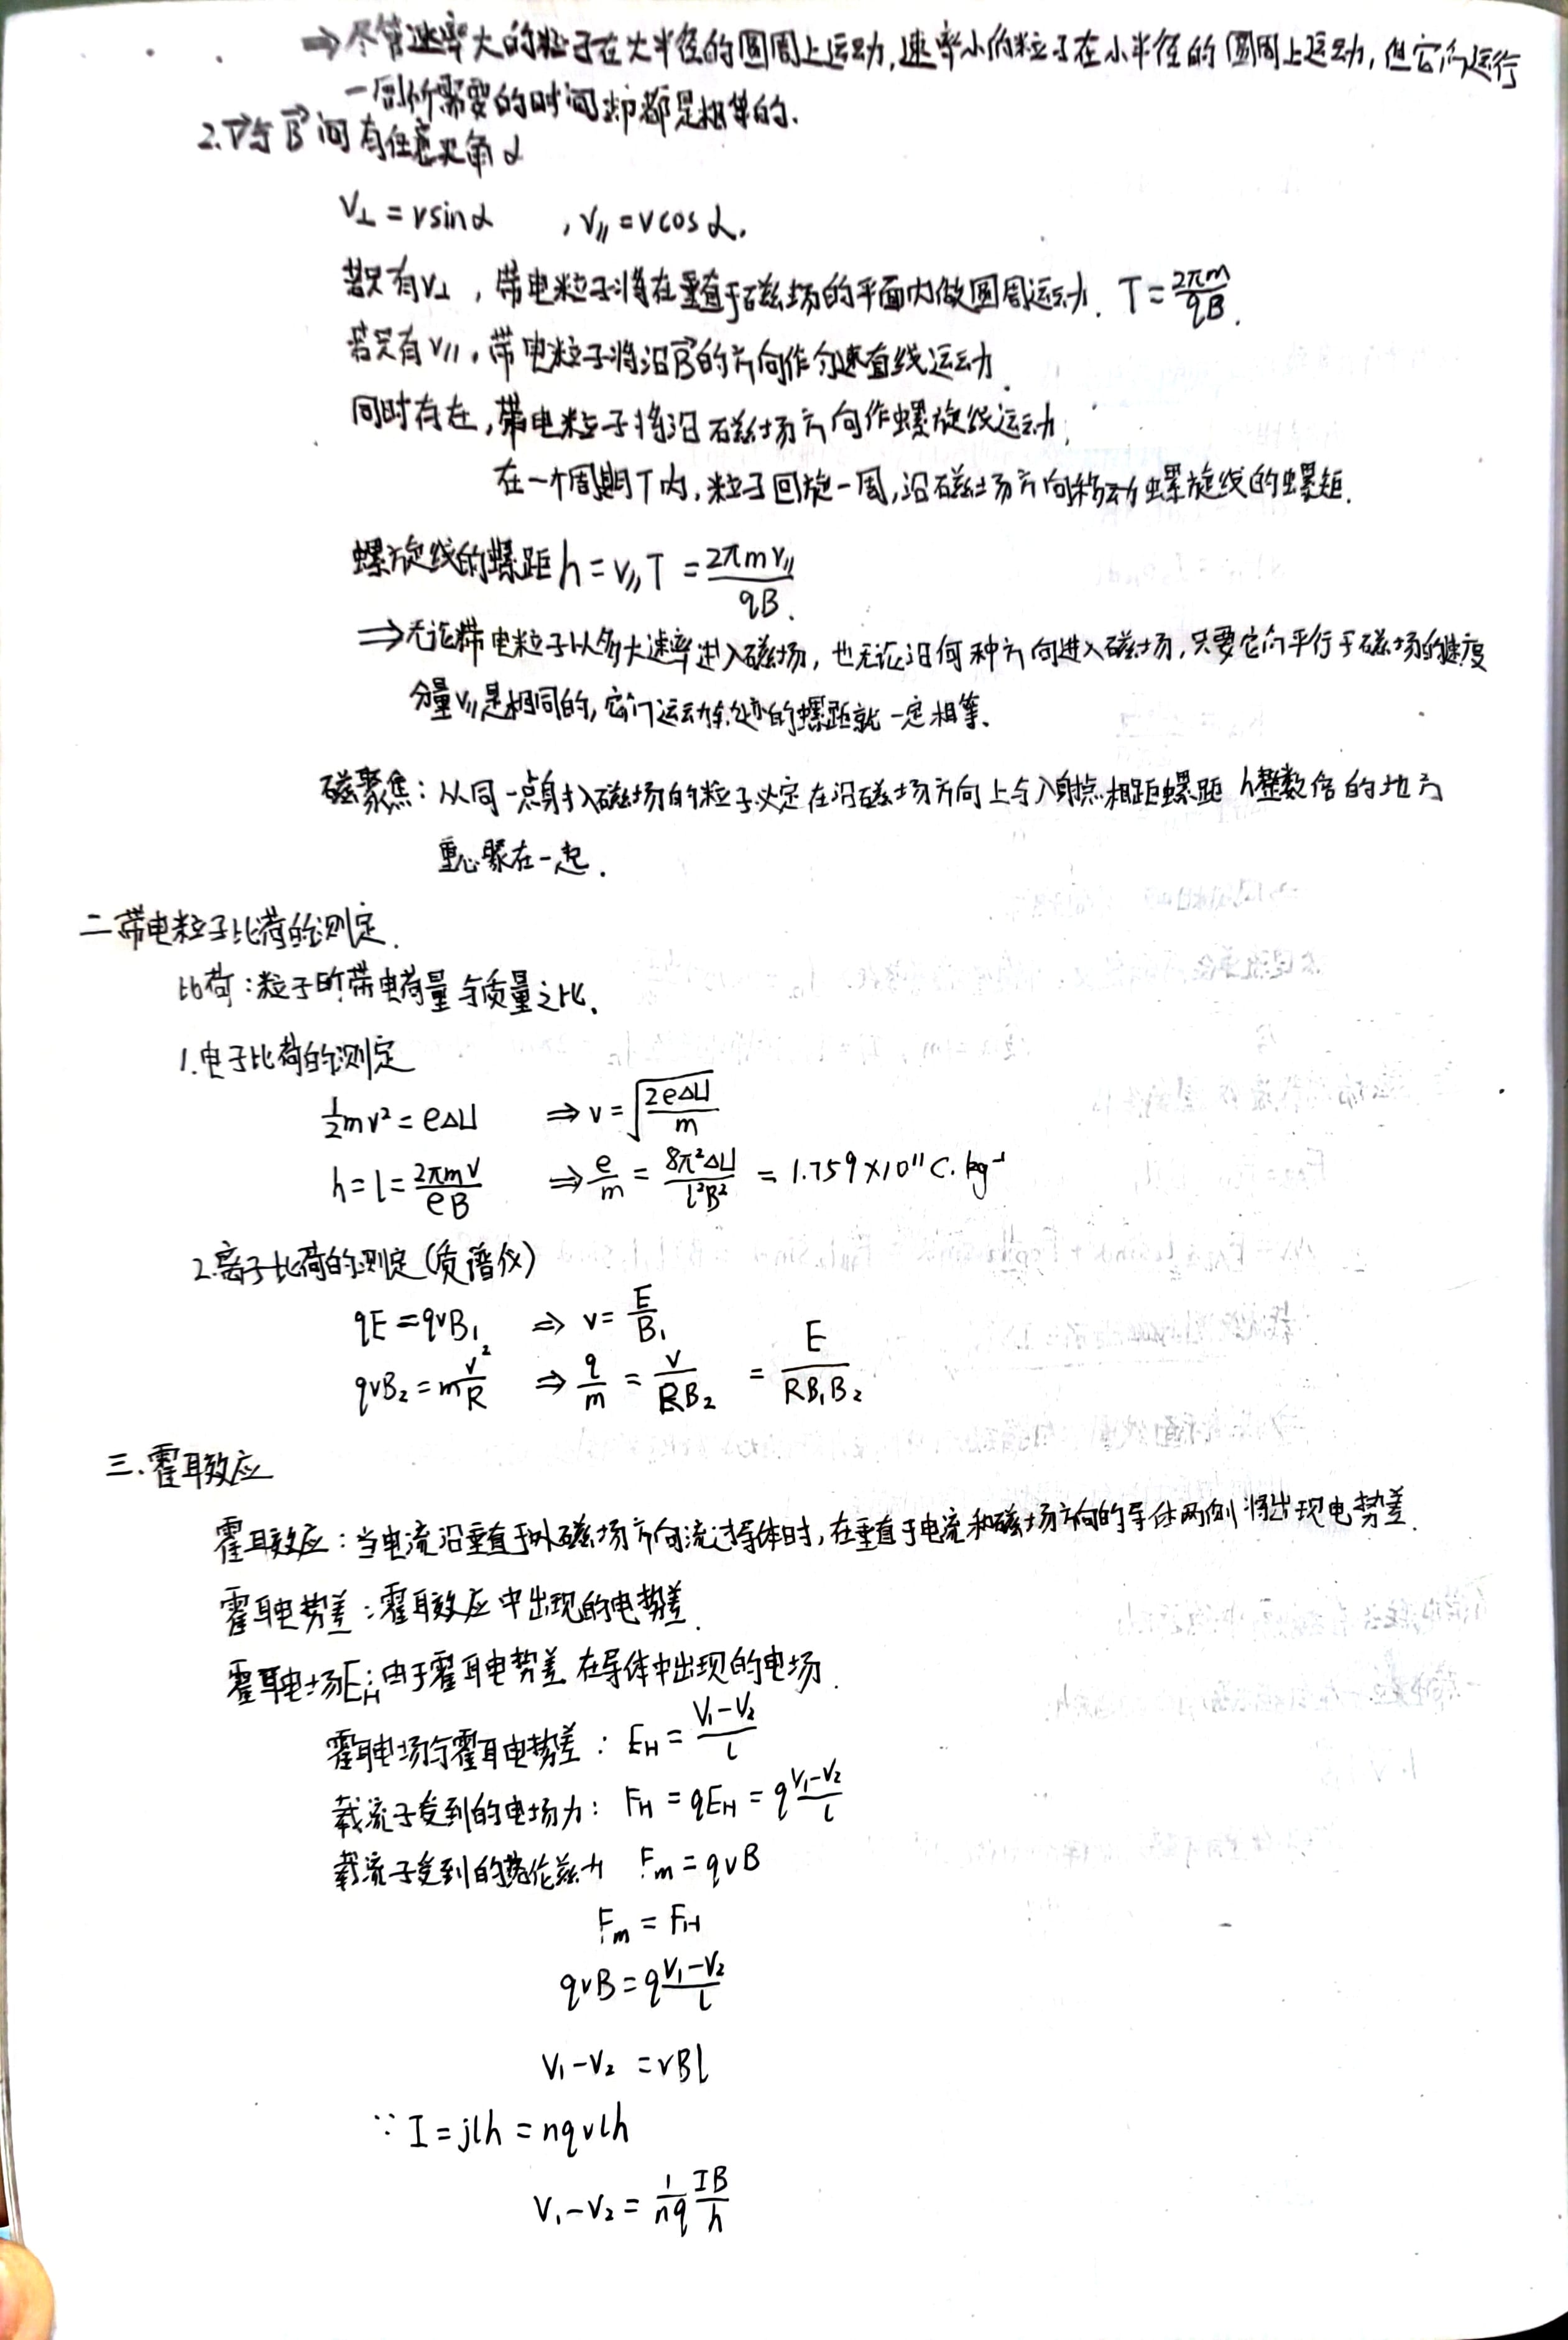 ⇒尽管速率大的粒子在大半径的圆周上运动,速率小的粒子在小半径的圆周上运动,但它们运行
一周所需要的时间却都是相等的.
2.v⃗与B⃗间有任意夹角α
V⊥=vsinα ,V∥=vcosα.
若只有V⊥,带电粒子将在垂直于磁场的平面内做圆周运动. T=2πm/qB.
若只有V∥,带电粒子将沿B⃗的方向作匀速直线运动.
同时存在,带电粒子将沿磁场方向作螺旋线运动,
在一个周期T内,粒子回旋一周,沿磁场方向移动螺旋线的螺距.
螺旋线的螺距h=V∥T=2πmV∥/qB.
⇒无论带电粒子以多大速率进入磁场,也无论沿何种方向进入磁场,只要它们平行于磁场的速度
分量V∥是相同的,它们运动轨迹的螺距就一定相等.
磁聚焦:从同一点射入磁场的粒子必定在沿磁场方向上与入射点相距螺距h整数倍的地方
重心聚在一起.
二带电粒子比荷的测定.
比荷:粒子所带电荷量与质量之比.
1.电子比荷的测定
½mv²=eΔU ⇒v=√(2eΔU/m)
h=l=2πmv/eB ⇒e/m=8π²ΔU/l²B²=1.759×10¹¹C·kg⁻¹
2.离子比荷的测定(质谱仪)
qE=qvB₁ ⇒ v=E/B₁
qvB₂=mv²/R ⇒q/m=v/RB₂ =E/RB₁B₂
三.霍耳效应
霍耳效应:当电流沿垂直于外磁场方向流过导体时,在垂直于电流和磁场方向的导体两侧将出现电势差.
霍耳电势差:霍耳效应中出现的电势差.
霍耳电场E_H:由于霍耳电势差在导体中出现的电场.
霍耳电场与霍耳电势差:E_H=(V₁-V₂)/l
载流子受到的电场力:F_H=qE_H=q(V₁-V₂)/l
载流子受到的洛伦兹力 F_m=qvB
F_m=F_H
qvB=q(V₁-V₂)/l
V₁-V₂=vBl
∵I=jlh=nqvlh
V₁-V₂=1/nq IB/h